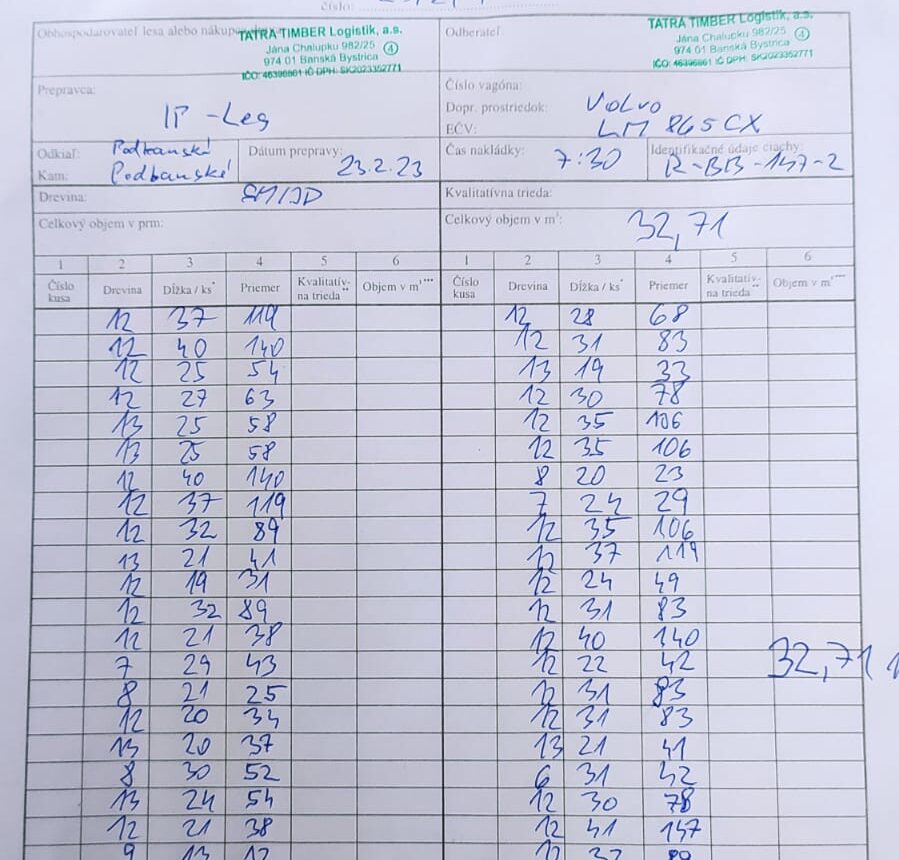 číslo:
Obhospodarovateľ lesa alebo nákup
TATRA TIMBER Logistik, a.s.
Jána Chalupku 982/25 4
974 01 Banská Bystrica
IČO: 46396861 IČ DPH: SK2023352771
Odberateľ
TATRA TIMBER Logistik, a.s.
Jána Chalupku 982/25 4
974 01 Banská Bystrica
IČO: 46396861 IČ DPH: SK2023352771
Prepravca:
IP-Les
Číslo vagóna:
Dopr. prostriedok: Volvo
EČV: LM 865CX
Odkiaľ: Podbanské
Kam: Podbanské
Dátum prepravy: 23.2.23
Čas nakládky: 7:30
Identifikačné údaje ciachy:
R-BB-147-2
Drevina: SM/JD
Kvalitatívna trieda:
Celkový objem v prm:
Celkový objem v m³: 32,71
1 2 3 4 5 6 1 2 3 4 5 6
Číslo kusa Drevina Dĺžka / ks* Priemer Kvalitatív-na trieda** Objem v m³*** Číslo kusa Drevina Dĺžka / ks* Priemer Kvalitatív-na trieda** Objem v m³***
12 37 119 12 28 68
12 40 140 12 31 83
12 25 54 13 19 33
12 27 63 12 30 78
13 25 58 12 35 106
13 25 58 12 35 106
12 40 140 8 20 23
12 37 119 7 24 29
12 32 89 12 35 106
13 21 41 12 37 119
12 19 31 12 24 49
12 32 89 12 31 83
12 21 38 12 40 140
7 29 43 12 22 42 32,71
8 21 25 12 31 83
12 20 34 12 31 83
13 20 37 13 21 41
8 30 52 6 31 42
13 24 54 12 30 78
12 21 38 12 41 147
9 13 12 12 32 89